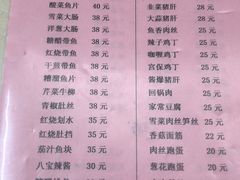 酸菜鱼片 40 元
雪菜大肠 38 元
洋葱大肠 38 元
醋醋带鱼 30 元
红烧带鱼 30 元
干煎带鱼 30 元
糟溜鱼片 38 元
芹菜牛柳 38 元
青椒肚丝 38 元
红烧划水 35 元
红烧肚挡 35 元
茄汁鱼块 35 元
八宝辣酱 30 元
韭菜猪肝 28 元
大蒜猪肝 28 元
鱼香肉丝 25 元
辣子鸡丁 25 元
咖喱鸡丁 25 元
宫保鸡丁 25 元
酱爆猪肝 28 元
回锅肉 25 元
家常豆腐 25 元
雪菜肉丝笋丝 25 元
香菇面筋 25 元
肉丝跑蛋 20 元
葱花跑蛋 20 元